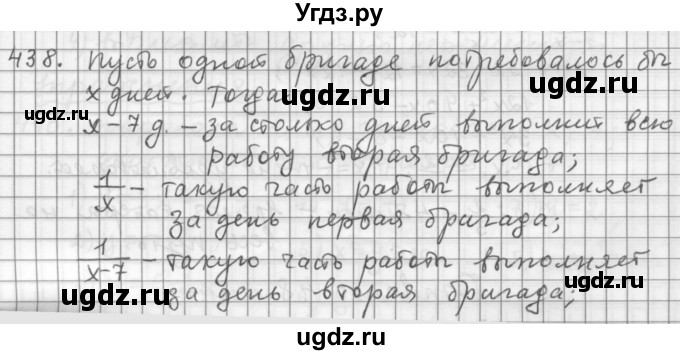 Угдз.ру
438. Пусть одной бригаде потребовалось бы
x дней. Тогда
x-7 д. - за столько дней выполнит всю
работу вторая бригада;
1/x - такую часть работы выполняет
за день первая бригада;
1/(x-7) - такую часть работы выполняет
за день вторая бригада;
ugdz.ru ugdz.ru ugdz.ru
ugdz.ru ugdz.ru
ugdz.ru ugdz.ru ugdz.ru
ugdz.ru